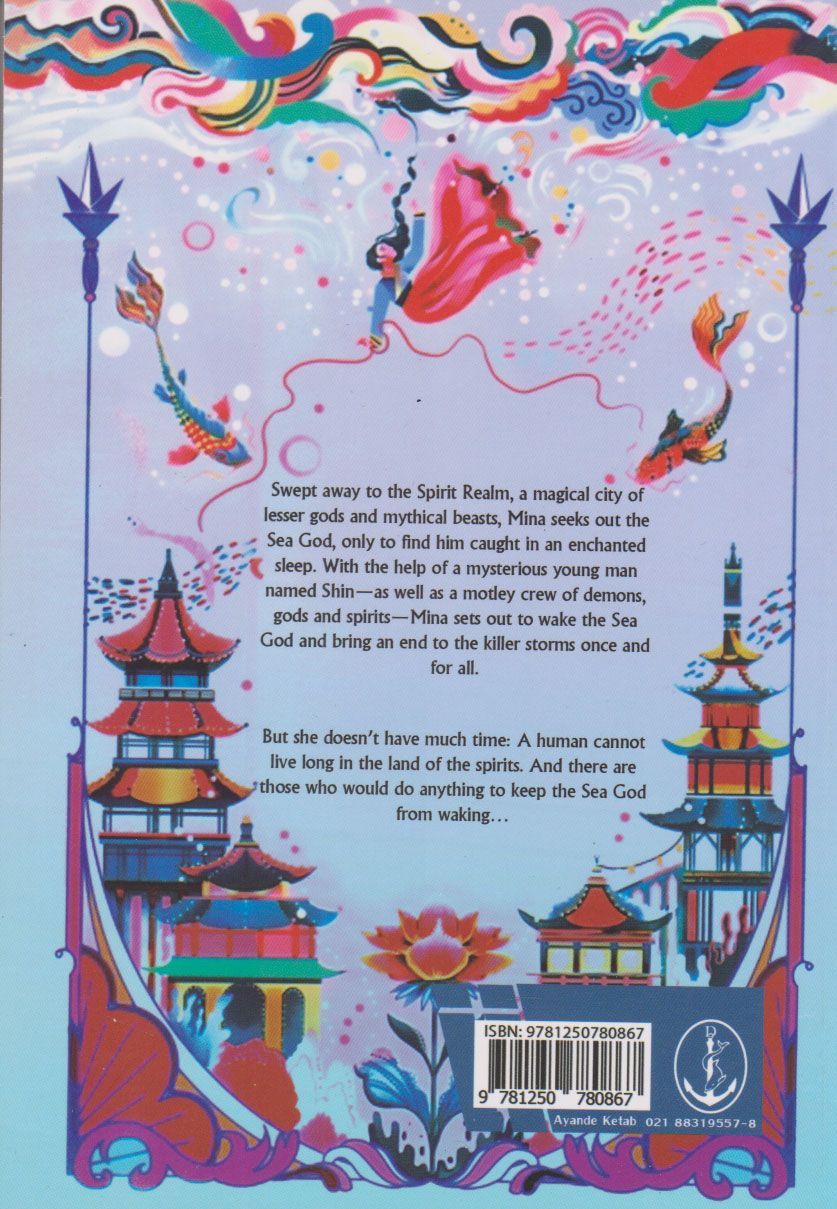 Swept away to the Spirit Realm, a magical city of
lesser gods and mythical beasts, Mina seeks out the
Sea God, only to find him caught in an enchanted
sleep. With the help of a mysterious young man
named Shin—as well as a motley crew of demons,
gods and spirits—Mina sets out to wake the Sea
God and bring an end to the killer storms once and
for all.
But she doesn't have much time: A human cannot
live long in the land of the spirits. And there are
those who would do anything to keep the Sea God
from waking...
ISBN: 9781250780867
9 781250 780867
D
Ayande Ketab 021 88319557-8